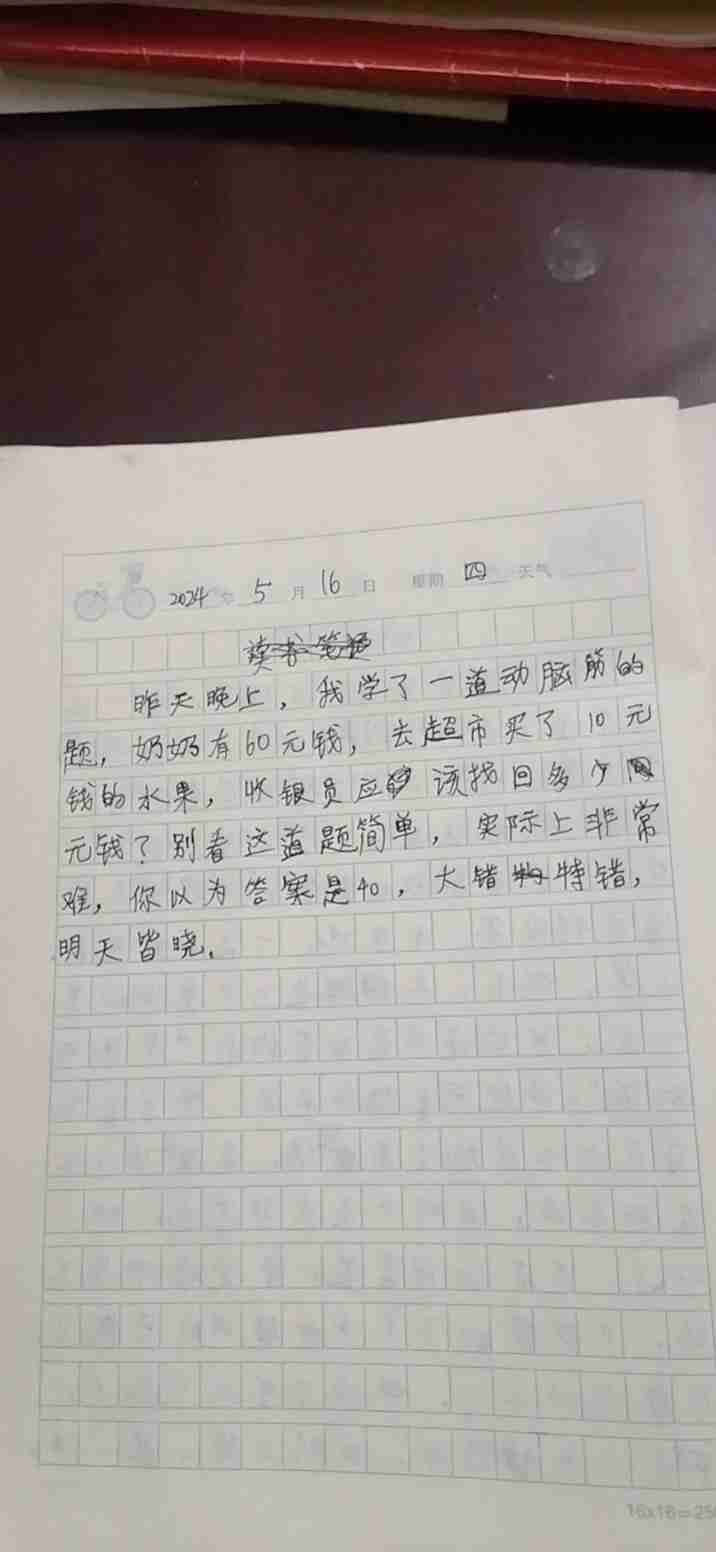 2024年5月16日 星期四 天气
读书笔记
昨天晚上，我学了一道动脑筋的
题，奶奶有60元钱，去超市买了10元
钱的水果，收银员应该找回多少
元钱？别看这道题简单，实际上非常
难，你以为答案是40，大错特错，
明天皆晓.
16x16=256